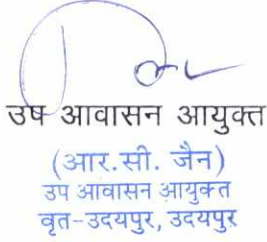 उप आवासन आयुक्त
(आर.सी. जैन)
उप आवासन आयुक्त
वृत-उदयपुर, उदयपुर